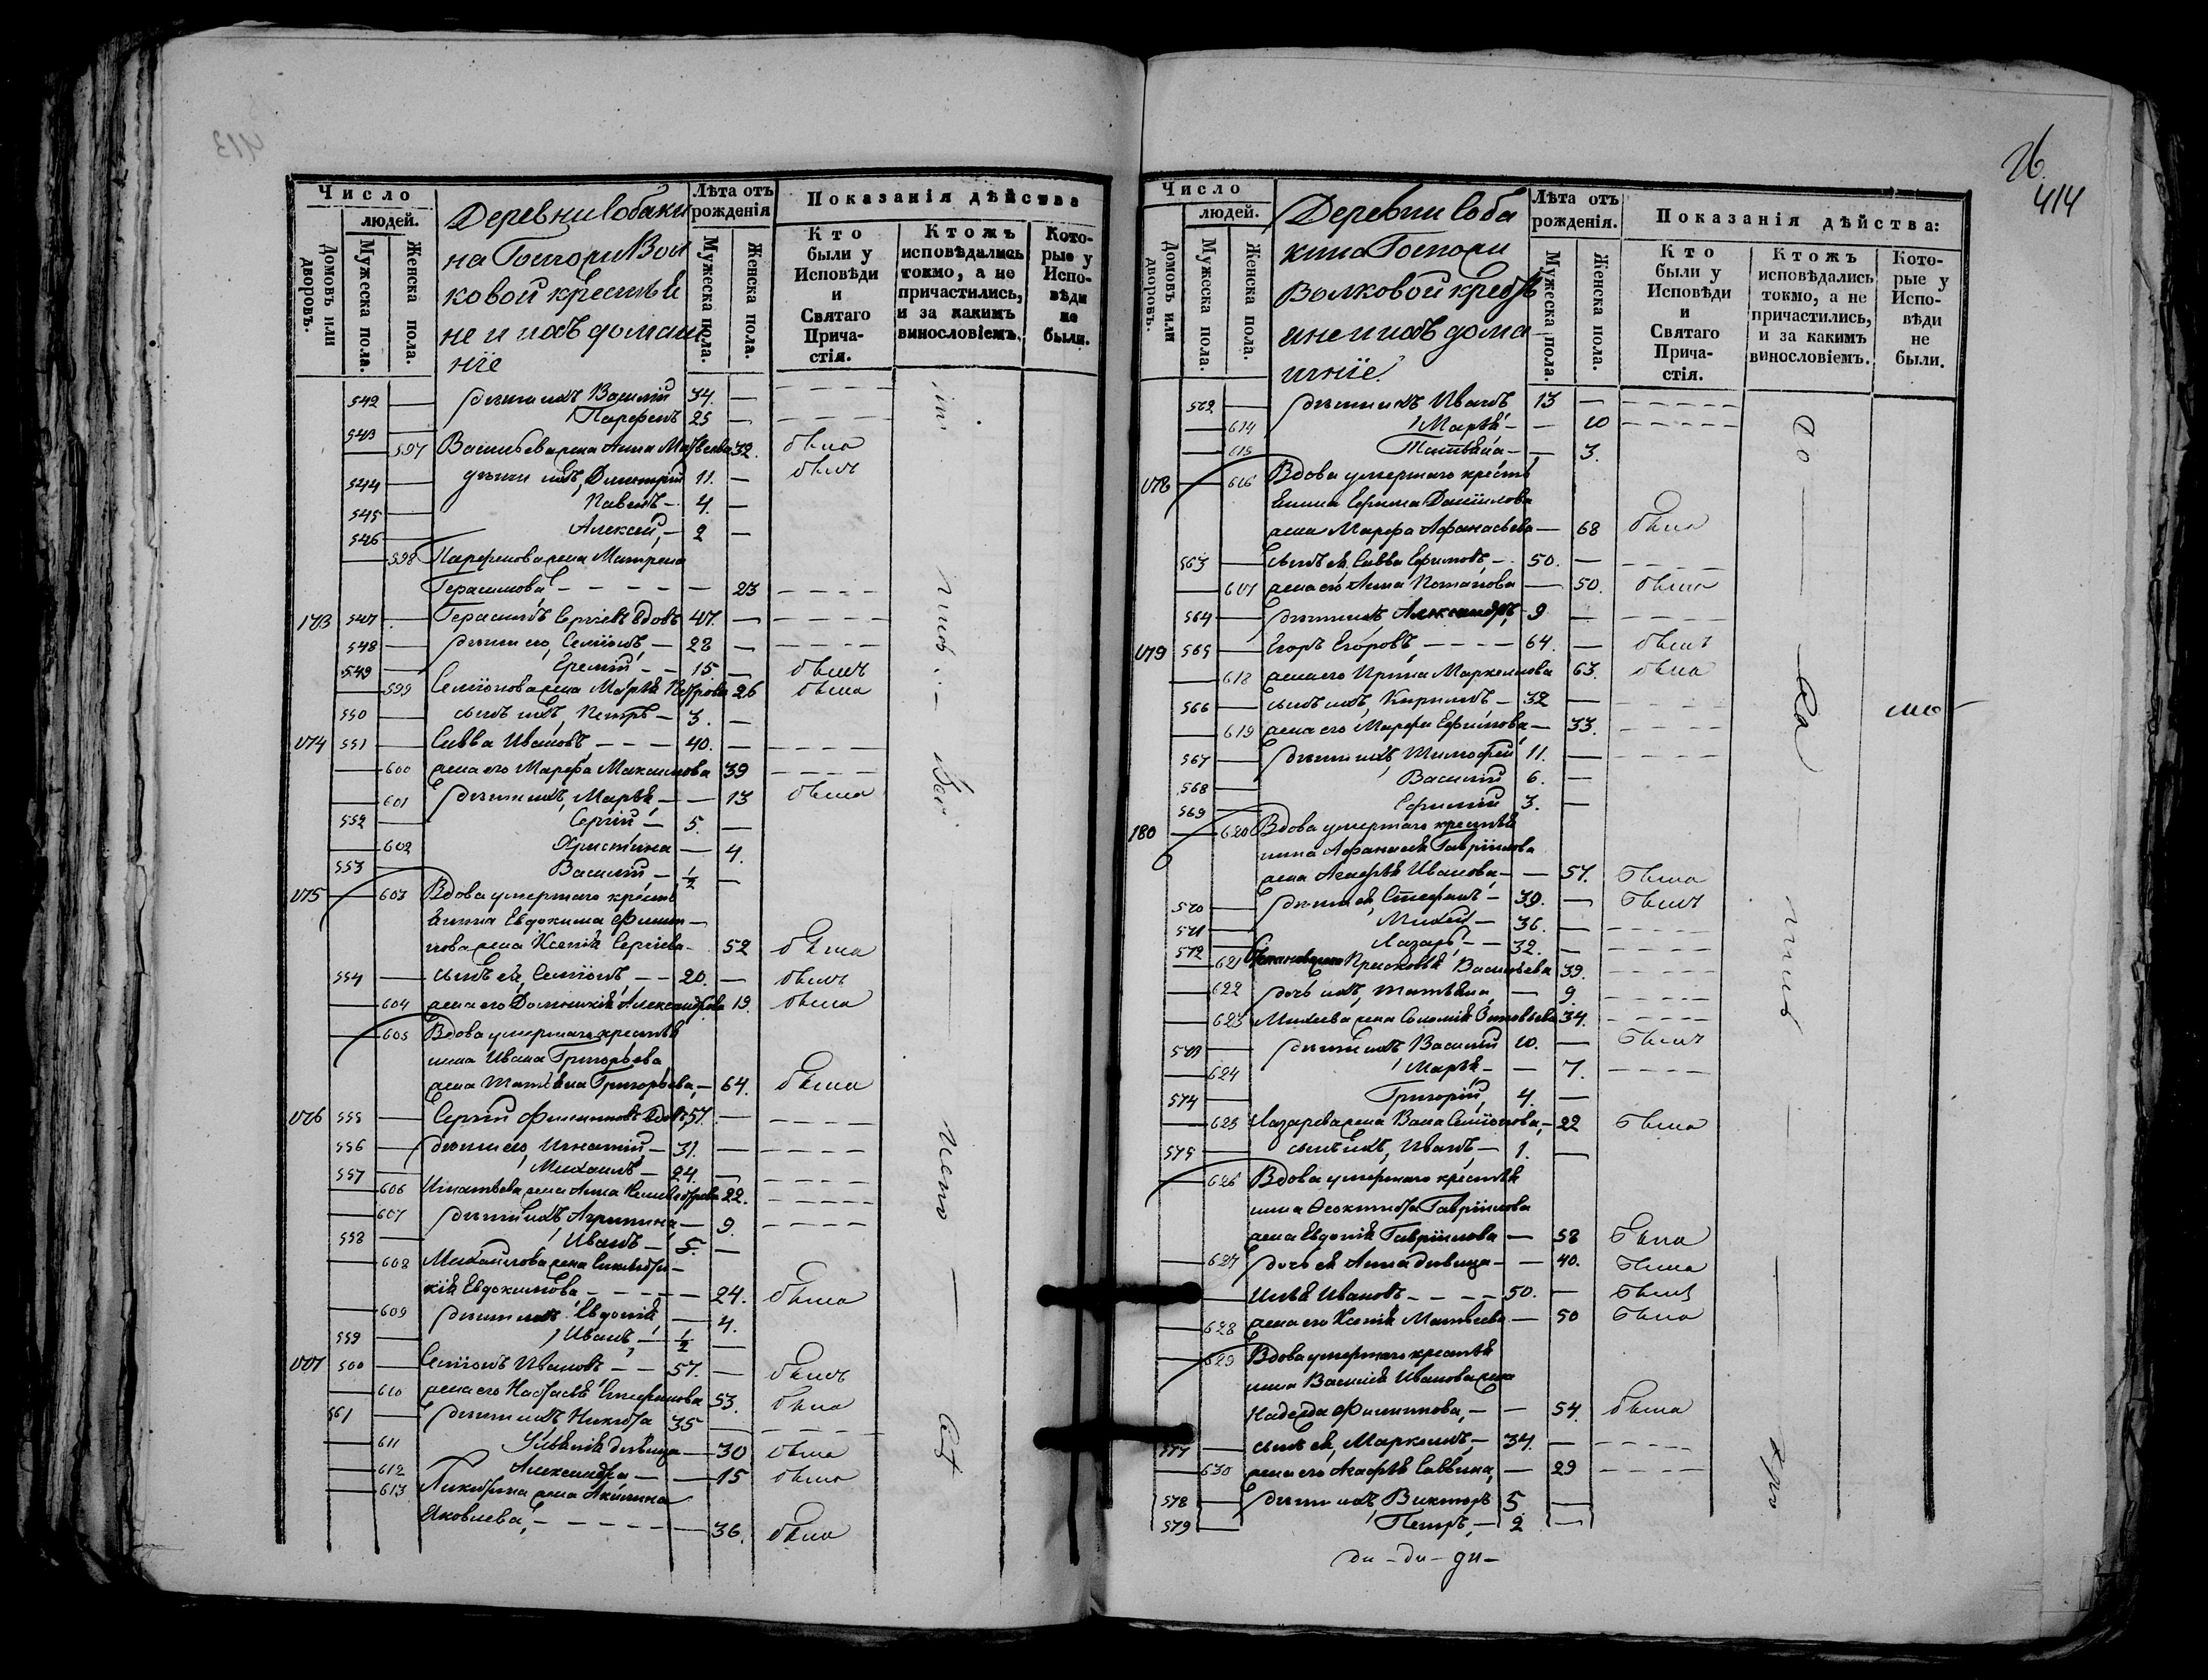 Число
людей.
Домовъ или дворовъ.
Мужеска пола.
Женска пола.
Деревни Собаки
на Госпожи Вол
ковой крестья
не и ихъ домаш
нiе
Лѣта отъ рожденiя
Мужеска пола.
Женска пола.
Показанiя дѣйства
Кто были у Исповѣди и Святаго Прича-стiя.
Ктожъ исповѣдались токмо, а не причастились, и за какимъ винословiемъ.
Кото-рые у Испо-вѣди не были.
542 — дѣти ихъ Василiй 34. —
543 — Парфенъ 25 —
— 597 Васильева жена Анна Матвѣева 32. была
544 — дѣти ихъ, Димитрiй 11. — былъ
545 — Павелъ — 4. —
546 — Алексѣй, — 2 —
— 598 Парфенова жена Матрена
Герасимова — 23
173 547 — Герасимъ Сергiевъ вдовъ 47. —
548 — дѣти его, Семiонъ, — 28 —
549 — Еремѣй — 15. — былъ
— 599 Семiонова жена Марья Петрова 26 была
550 — сынъ ихъ, Петръ — 3. —
174 551 — Савва Ивановъ — 40. —
— 600 жена его Марфа Максимова 39
— 601 дѣти ихъ, Марья — 13 была
552 — Сергiй — 5. —
— 602 Христина — 4.
553 — Василiй — ½ —
175 — 603 Вдова умершаго кресть
янина Евдокима Филип
пова жена Ксенiя Сергiева — 52 была
554 — сынъ ея, Семiонъ, — 20. — былъ
— 604 жена его Домникiя Александрова 19. была
— 605 Вдова умершаго крестья
нина Ивана Григорьева
жена Татьяна Григорьева, — 64. была
176 555 — Сергiй Филиповъ вдовъ, 57. —
556 — дѣти его, Игнатiй, — 31. —
557 — Михаилъ — 24. —
— 606 Игнатьева жена Анна 22.
— 607 дѣти ихъ, Агрипина — 9.
558 — Иванъ — 5. —
— 608 Михайлова жена
Евдокимова — 24. была
— 609 дѣти ихъ Евдокiя — 4.
559 — Иванъ, — ½ —
177 560 — Семiонъ Ивановъ — 57. — былъ
— 610 жена его Настасья Стефанова 53. была
561 — дѣти ихъ Никита 35 —
— 611 дѣвица — 30 была
— 612 Александра — 15 была
— 613 Никитина жена Акилина
Яковлева, — 36. была
26
414
Число
людей.
Домовъ или дворовъ.
Мужеска пола.
Женска пола.
Деревни Соба
кина Госпожи
Волковой кресть
яне и ихъ дома
шнiе.
Лѣта отъ рожденiя.
Мужеска пола.
Женска пола.
Показанiя дѣйства:
Кто были у Исповѣди и Святаго Прича-стiя.
Ктожъ исповѣдались токмо, а не причастились, и за какимъ винословiемъ.
Кото-рые у Испо-вѣди не были.
562 — дѣти ихъ Иванъ 13 —
— 614 Марья — 10
— 615 Татьяна — 3.
178 — 616 Вдова умершаго кресть
янина Ефима Данiилова
жена Марфа Афанасьева — 68 была
563 — сынъ ея, Савва Ефимовъ, — 50. —
— 617 жена его Анна Потапова — 50. была
564 — дѣти ихъ, Александръ, 9 —
179 565 — Егоръ Егоровъ — 64. — былъ
— 618 жена его Ирина Маркелова 63. была
566 — сынъ ихъ, Кирилъ — 32 —
— 619 жена его Марфа Ефимова, — 33.
567 — дѣти ихъ, Тимофей 11. —
568 — Василiй 6. —
569 — Ефимiй 3. —
180 — 620 Вдова умершаго крестья
нина Афанасiя Гаврiилова
жена Агафья Иванова, — 57. была
570 — дѣти ея, Стефанъ — 39. — былъ
571 — Михей — 36. —
572 — Лазарь — 32. —
— 621 Стефанова жена Прасковья Васильева 39.
— 622 дочь ихъ, Татьяна, — 9.
— 623 Михеева жена Соломiя 34.
573 — дѣти ихъ Василiй 10. — былъ
— 624 Марья — 7.
574 — Григорiй, 4. —
— 625 Лазарева жена Васа Семiонова, — 22 была
575 — сынъ ихъ, Иванъ, — 1. —
— 626 Вдова умершаго крестья
нина Феоктиста Гаврiилова
жена Евдокiя Гаврiилова — 58 была
— 627 дочь ея Анна дѣвица — 40. была
— Илья Ивановъ — 50. — былъ
— 628 жена его Ксенiя Матвѣева — 50 была
— 629 Вдова умершаго крестья
нина Василiя Иванова жена
Надежда Филипова, — 54. была
577 — сынъ ея, Маркелъ, — 34. —
— 630 жена его Агафья Саввина, — 29
578 — дѣти ихъ, Викторъ 5 —
579 — Петръ, — 2 —